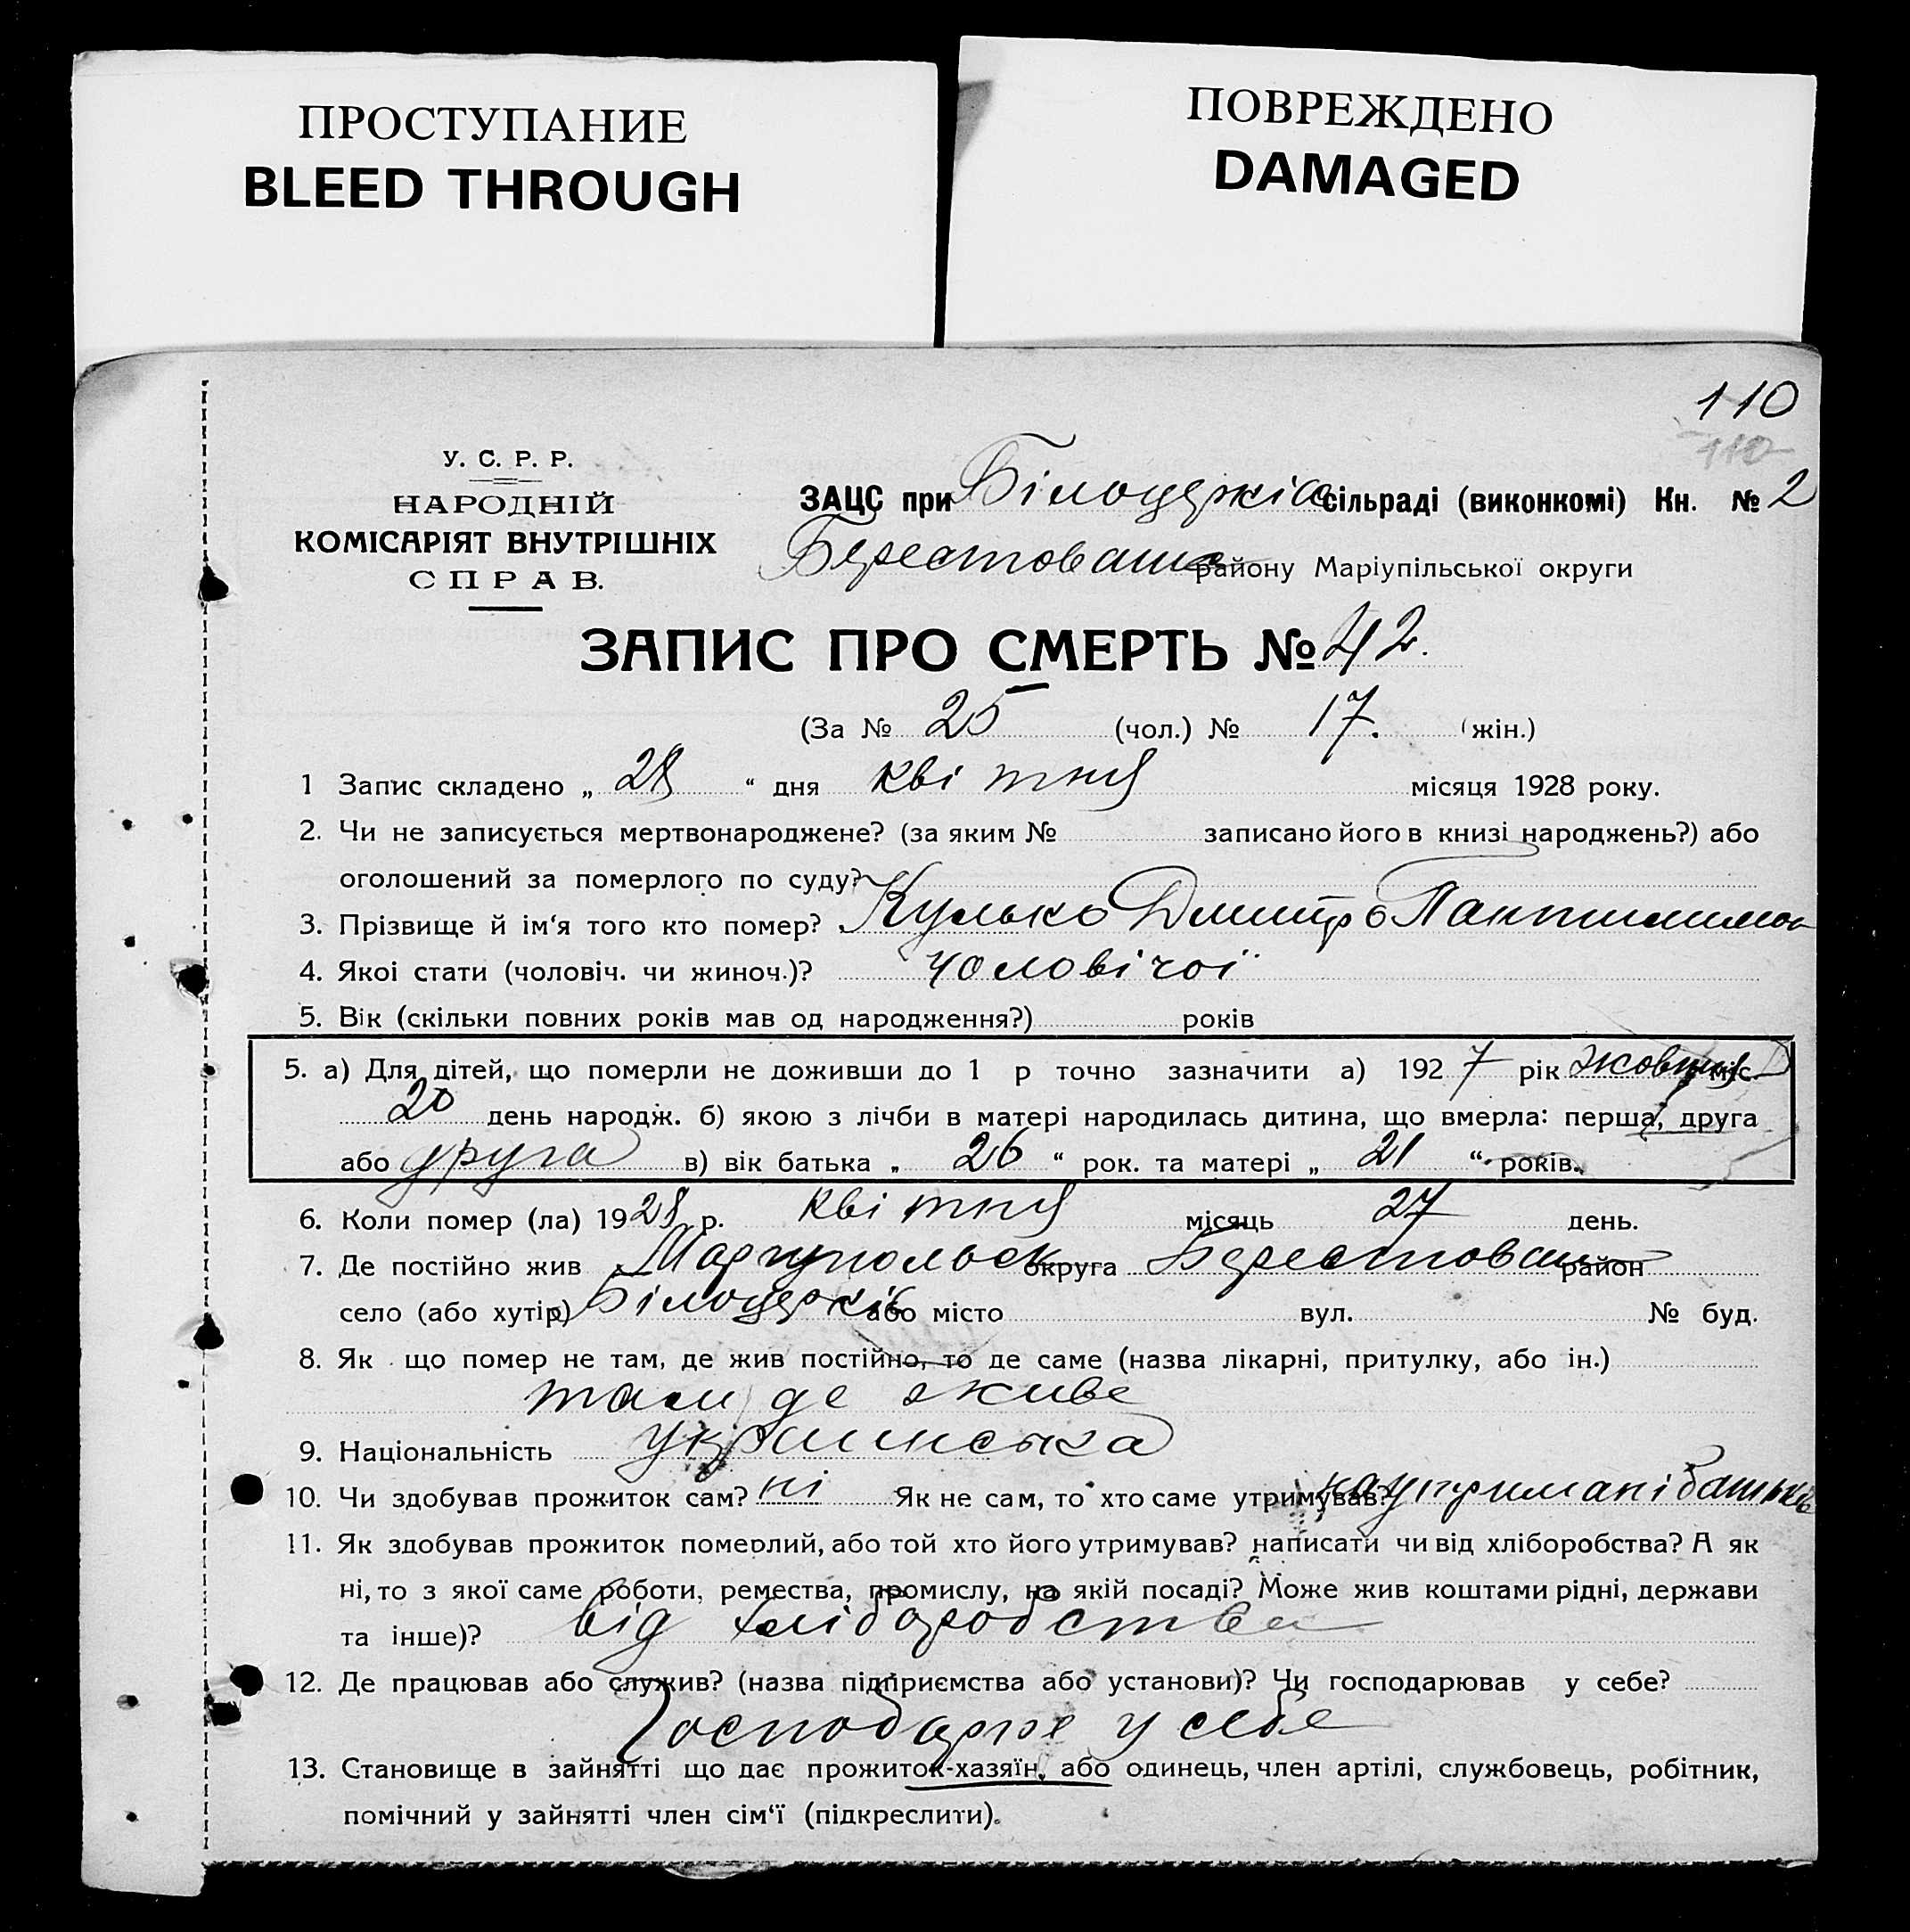 ПРОСТУПАНИЕ
BLEED THROUGH
ПОВРЕЖДЕНО
DAMAGED
110
110
У. С. Р. Р.
НАРОДНІЙ
КОМІСАРІЯТ ВНУТРІШНІХ
СПРАВ.
ЗАЦС при Білоцерків сільраді (виконкомі) Кн. № 2
Берестованс району Маріупільської округи
ЗАПИС ПРО СМЕРТЬ № 42.
(За № 25 (чол.) № 17. (жін.)
1 Запис складено „ 28 “ дня квітня місяця 1928 року.
2. Чи не записується мертвонароджене? (за яким № записано його в книзі народжень?) або
оголошений за померлого по суду?
3. Прізвище й ім‘я того кто помер? Кулько Дмитро Пантилимон
4. Якоі стати (чоловіч. чи жиноч.)? чоловічоі
5. Вік (скільки повних років мав од народження?) років
5. а) Для дітей, що померли не доживши до 1 р точно зазначити а) 1927 рік жовтня міс.
20 день народж. б) якою з лічби в матері народилась дитина, що вмерла: перша, друга
або друга в) вік батька „ 26 “ рок. та матері „ 21 “ років.
6. Коли помер (ла) 1928 р. квітня місяць 27 день.
7. Де постійно жив Маріупольск округа Берестован район
село (або хутір) Білоцерків або місто вул. № буд.
8. Як що помер не там, де жив постійно, то де саме (назва лікарні, притулку, або ін.)
там де живе
9. Національність украинська
10. Чи здобував прожиток сам? ні Як не сам, то хто саме утримував? на утримані батьків
11. Як здобував прожиток померлий, або той хто його утримував? написати чи від хліборобства? А як
ні, то з якої саме роботи, ремества, промислу, на якій посаді? Може жив коштами рідні, держави
та інше)? від хліборобства
12. Де працював або служив? (назва підприємства або установи)? Чи господарював у себе?
Господарює у себе
13. Становище в зайнятті що дає прожиток-хазяїн, або одинець, член артілі, службовець, робітник,
помічний у зайнятті член сім‘ї (підкреслити).